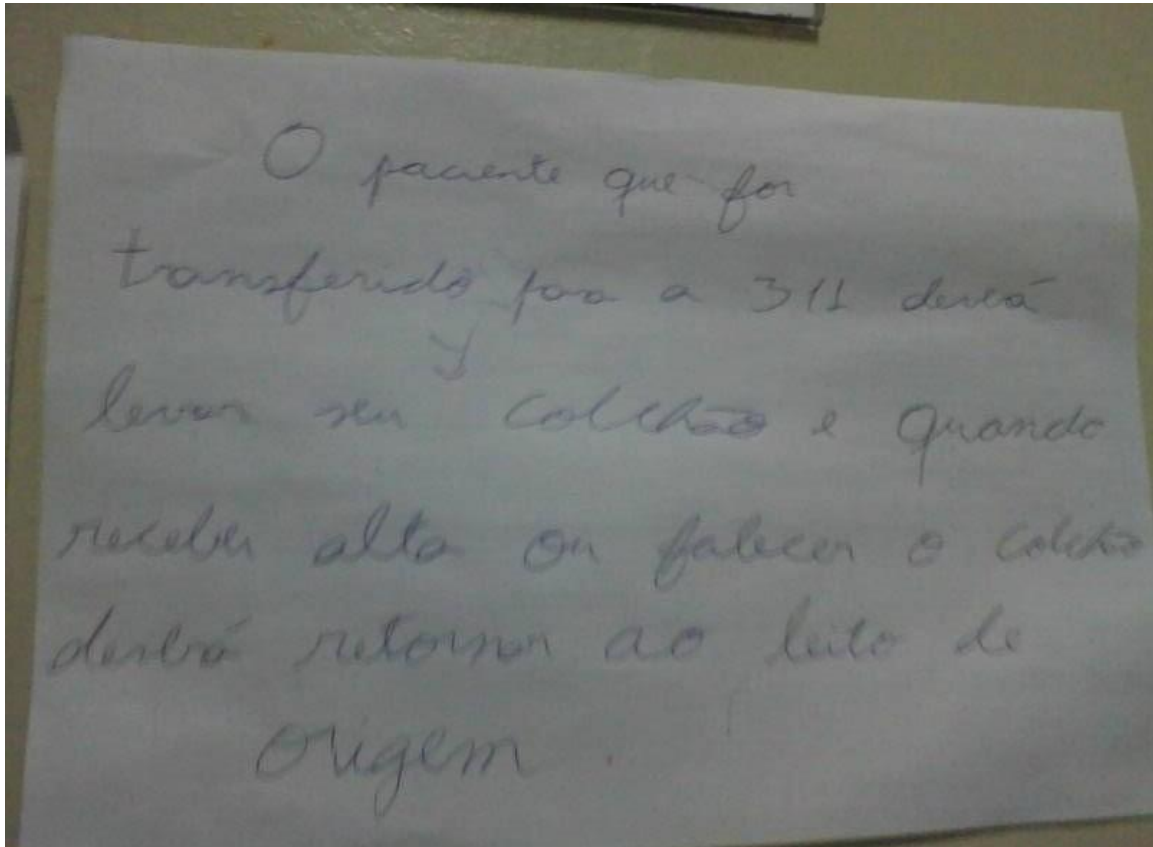 O paciente que for
transferido para a 311 deverá
levar seu colchão e quando
receber alta ou falecer o colchão
deverá retornar ao leito de
origem.